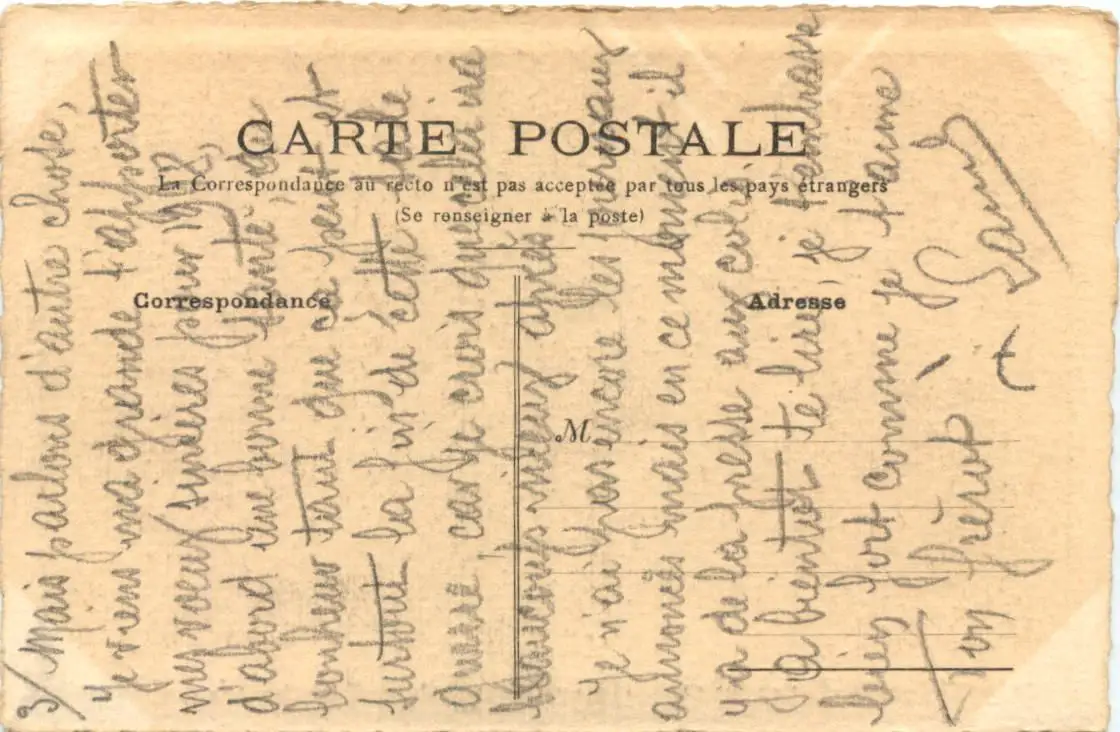 CARTE POSTALE
La Correspondance au recto n'est pas acceptée par tous les pays étrangers
(Se renseigner à la poste)
Correspondance
Adresse
M
3/ Mais parlons d'autre chose,
je viens ma grande t'apporter
mes voeux sincères pour 1918,
d'abord une bonne santé, du
bonheur tant que ce peut et
surtout la fin de cette
guerre car je crois que cela ira
beaucoup mieux après
Je n'ai pas encore les journaux
annoncés mais en ce moment il
y a de la presse aux colis
A bientôt te lire, je t'embrasse
bien fort comme je t'aime
Ton frérot